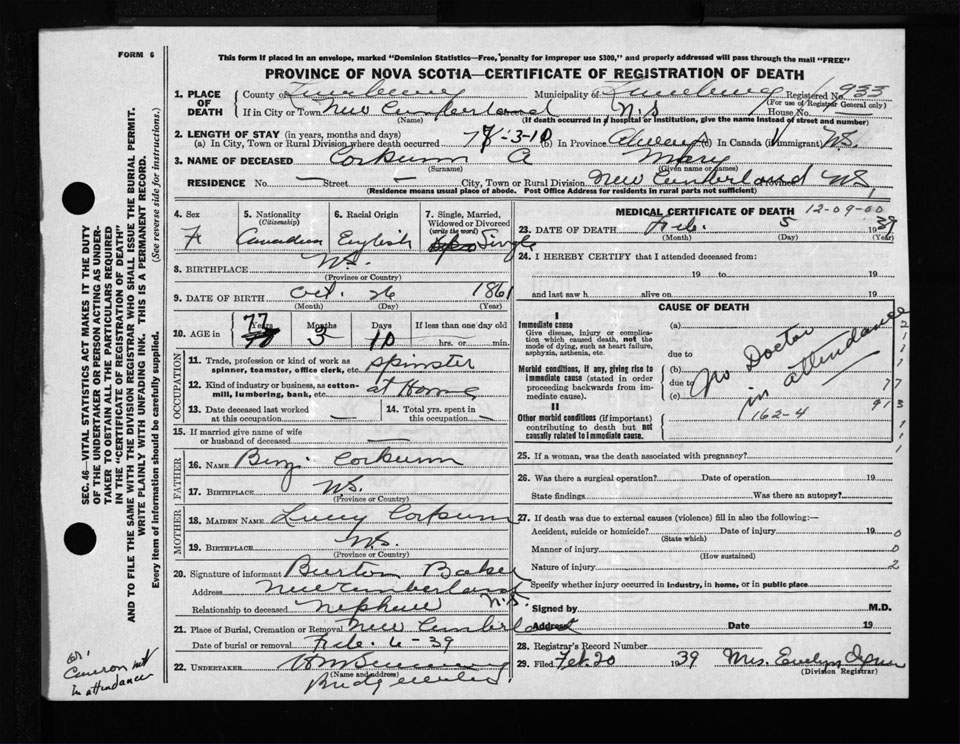 FORM 6
This form if placed in an envelope, marked "Dominion Statistics—Free, penalty for improper use $300," and properly addressed will pass through the mail "FREE"
PROVINCE OF NOVA SCOTIA—CERTIFICATE OF REGISTRATION OF DEATH
1. PLACE OF DEATH
County of Lunenburg Municipality of Lunenburg Registered No. 933
(For use of Registrar General only)
If in City or Town New Cumberland N.S House No.
(Name) (If death occurred in a hospital or institution, give the name instead of street and number)
2. LENGTH OF STAY (in years, months and days)
(a) In City, Town or Rural Division where death occurred 77-3-10 (b) In Province Always (c) In Canada (if immigrant) N.S.
3. NAME OF DECEASED Corkum A Mary
(Surname) (Given name or names)
RESIDENCE No. — Street — City, Town or Rural Division New Cumberland Province N.S
(Residence means usual place of abode. Post Office Address for residents in rural parts not sufficient)
4. Sex
F
5. Nationality
(Citizenship)
Canadian
6. Racial Origin
English
7. Single, Married, Widowed or Divorced
(write the word)
Single
8. BIRTHPLACE N.S.
(Province or Country)
9. DATE OF BIRTH Oct. 26 1861
(Month) (Day) (Year)
10. AGE in
Years Months Days If less than one day old
77 3 10 hrs. or min.
OCCUPATION
11. Trade, profession or kind of work as spinner, teamster, office clerk, etc. spinster
12. Kind of industry or business, as cotton-mill, lumbering, bank, etc. at Home
13. Date deceased last worked at this occupation —
14. Total yrs. spent in this occupation —
15. If married give name of wife or husband of deceased —
FATHER
16. NAME Benj Corkum
17. BIRTHPLACE N.S.
(Province or Country)
MOTHER
18. MAIDEN NAME Lucy Corkum
19. BIRTHPLACE N.S.
(Province or Country)
20. Signature of informant Burton Baker
Address New Cumberland N.S.
Relationship to deceased nephew
21. Place of Burial, Cremation or Removal New Cumberland
Date of burial or removal Feb 6-39
22. UNDERTAKER
(Name and address)
Bridgewater
MEDICAL CERTIFICATE OF DEATH 12-09-00
23. DATE OF DEATH Feb. 5 1939
(Month) (Day) (Year)
24. I HEREBY CERTIFY that I attended deceased from:
19 to 19
and last saw h alive on 19
CAUSE OF DEATH
I
Immediate cause
Give disease, injury or complication which caused death, not the mode of dying, such as heart failure, asphyxia, asthenia, etc.
(a)
due to
Morbid conditions, if any, giving rise to immediate cause (stated in order proceeding backwards from immediate cause).
(b)
due to
(c)
No Doctor in attendance
II
Other morbid conditions (if important) contributing to death but not causally related to immediate cause.
162-4
25. If a woman, was the death associated with pregnancy?
26. Was there a surgical operation? Date of operation 19
State findings Was there an autopsy?
27. If death was due to external causes (violence) fill in also the following:—
Accident, suicide or homicide? Date of injury 19
(State which)
Manner of injury
(How sustained)
Nature of injury
Specify whether injury occurred in industry, in home, or in public place
Signed by M.D.
Address Date 19
28. Registrar's Record Number
29. Filed Feb. 20 1939 Mrs. Evelyn
(Division Registrar)
SEC. 46—VITAL STATISTICS ACT MAKES IT THE DUTY
OF THE UNDERTAKER OR PERSON ACTING AS UNDER-
TAKER TO OBTAIN ALL THE PARTICULARS REQUIRED
IN THE "CERTIFICATE OF REGISTRATION OF DEATH"
AND TO FILE THE SAME WITH THE DIVISION REGISTRAR WHO SHALL ISSUE THE BURIAL PERMIT.
WRITE PLAINLY WITH UNFADING INK. THIS IS A PERMANENT RECORD.
Every item of information should be carefully supplied. (See reverse side for instructions.)
Dr.
Cameron not
in attendance